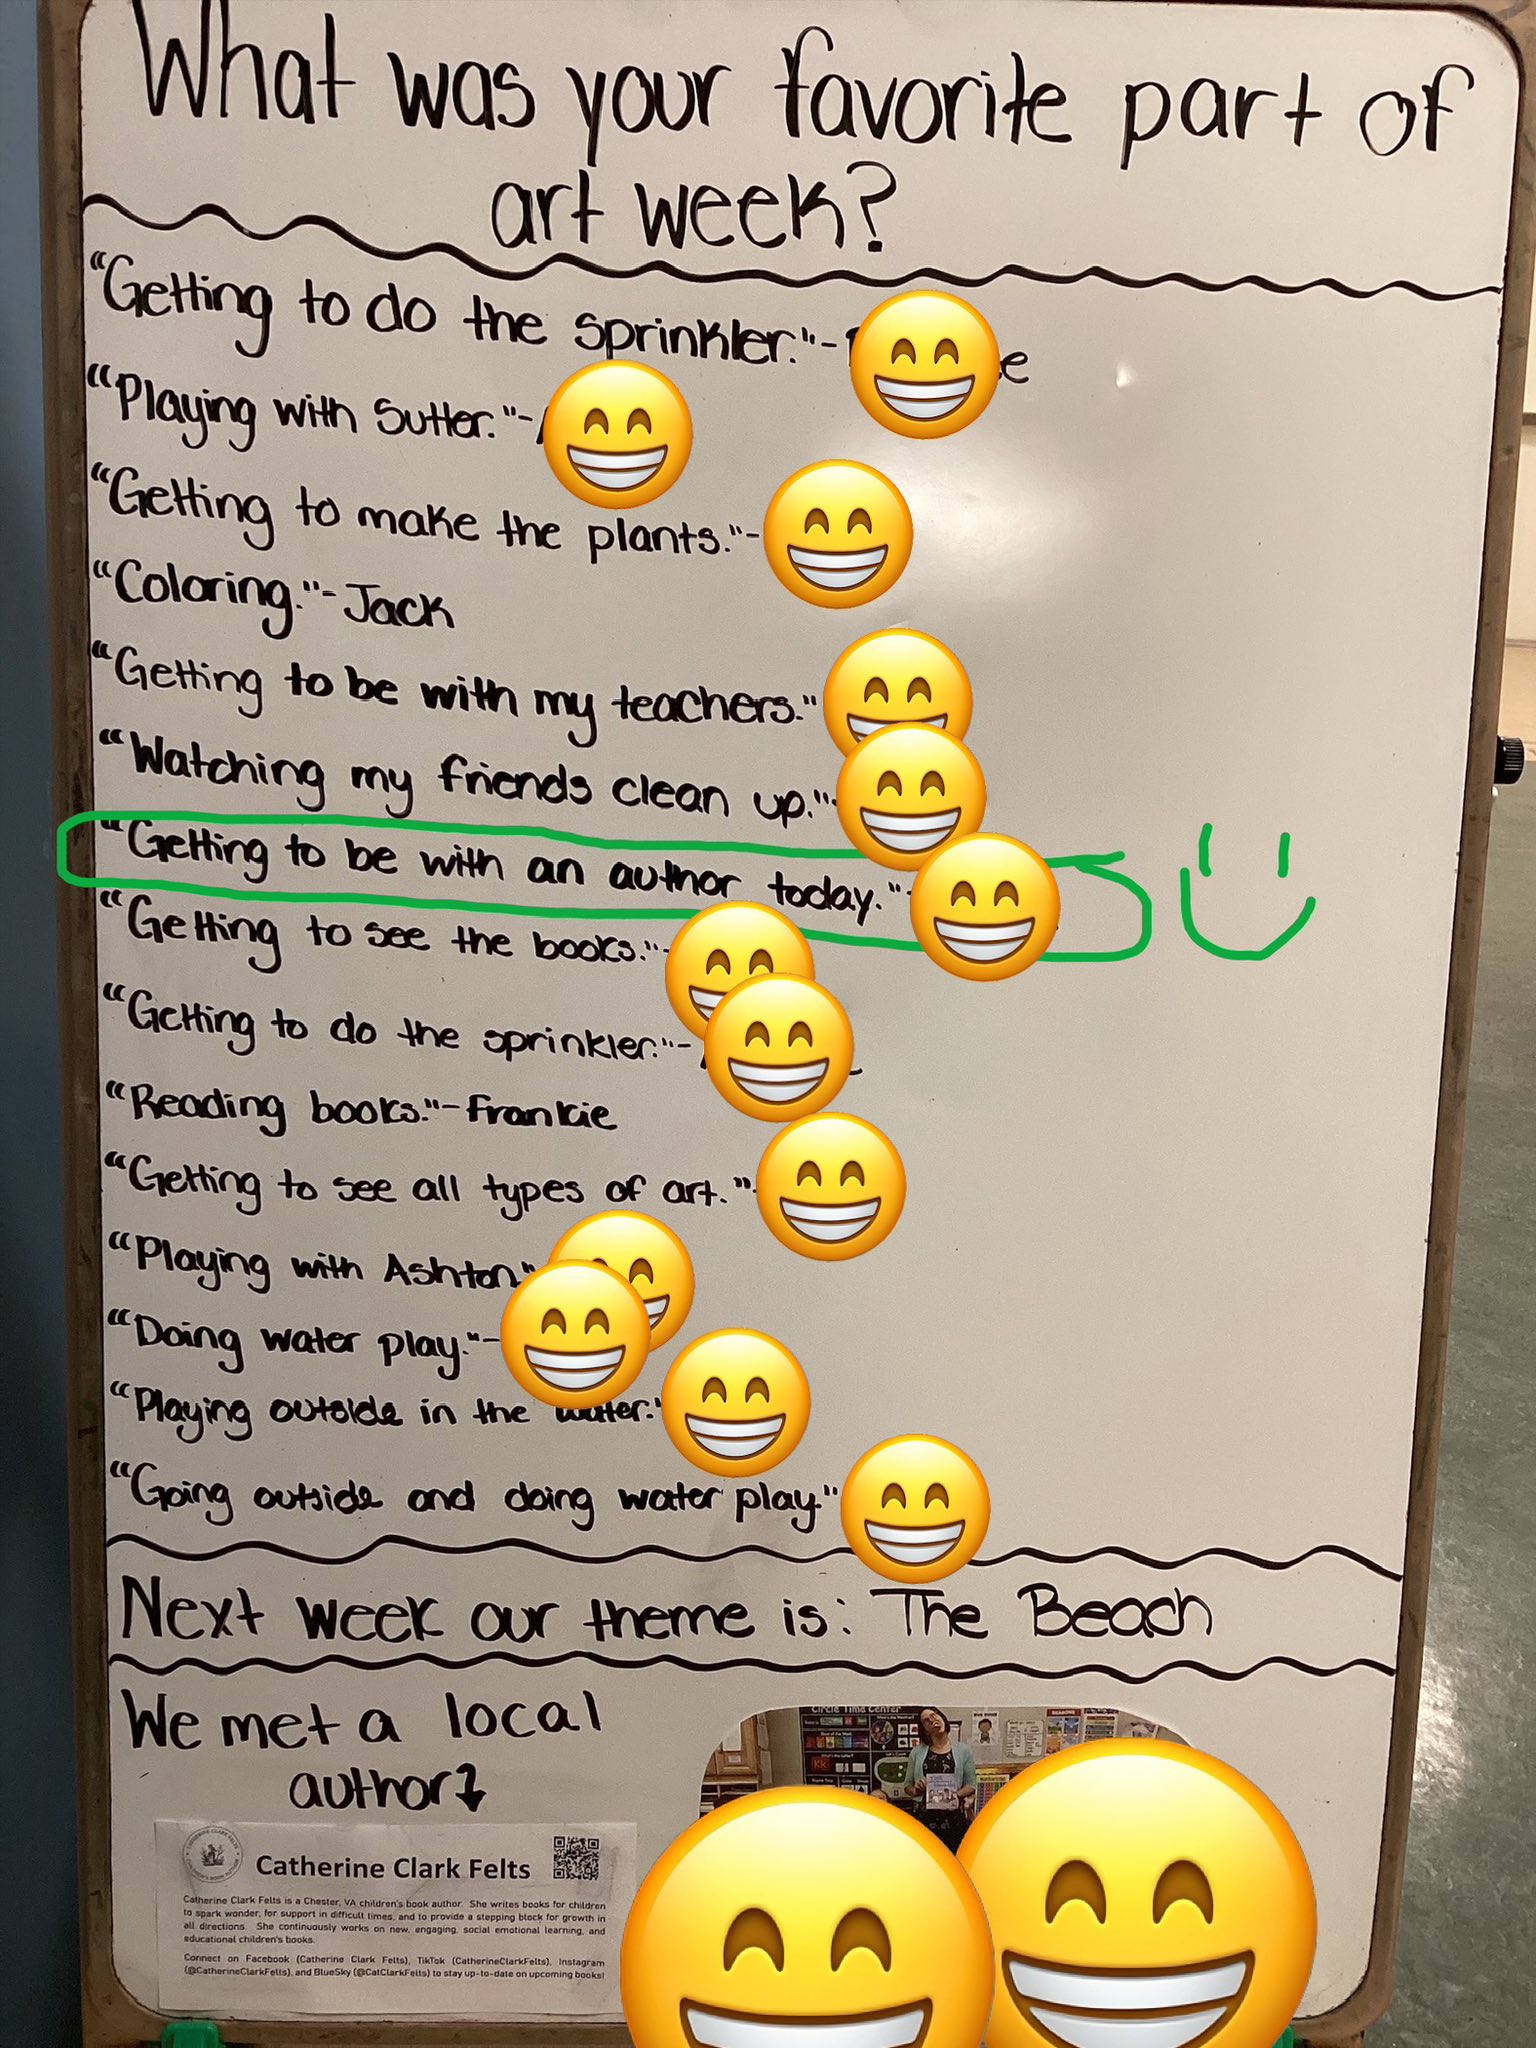 What was your favorite part of
art week?
"Getting to do the sprinkler."-
"Playing with Sutter."-
"Getting to make the plants."-
"Coloring."-Jack
"Getting to be with my teachers."
"Watching my friends clean up."-
"Getting to be with an author today."-
"Getting to see the books."-
"Getting to do the sprinkler."-
"Reading books."-Frankie
"Getting to see all types of art."
"Playing with Ashton."
"Doing water play."-
"Playing outside in the water."
"Going outside and doing water play."
Next week our theme is: The Beach
We met a local
author
Circle Time Center
Catherine Clark Felts
Catherine Clark Felts is a Chester, VA children's book author. She writes books for children
to spark wonder, for support in difficult times, and to provide a stepping block for growth in
all directions. She continuously works on new, engaging, social emotional learning, and
educational children's books.
Connect on Facebook (Catherine Clark Felts), TikTok (CatherineClarkFelts), Instagram
(@CatherineClarkFelts), and BlueSky (@CatClarkFelts) to stay up-to-date on upcoming books!